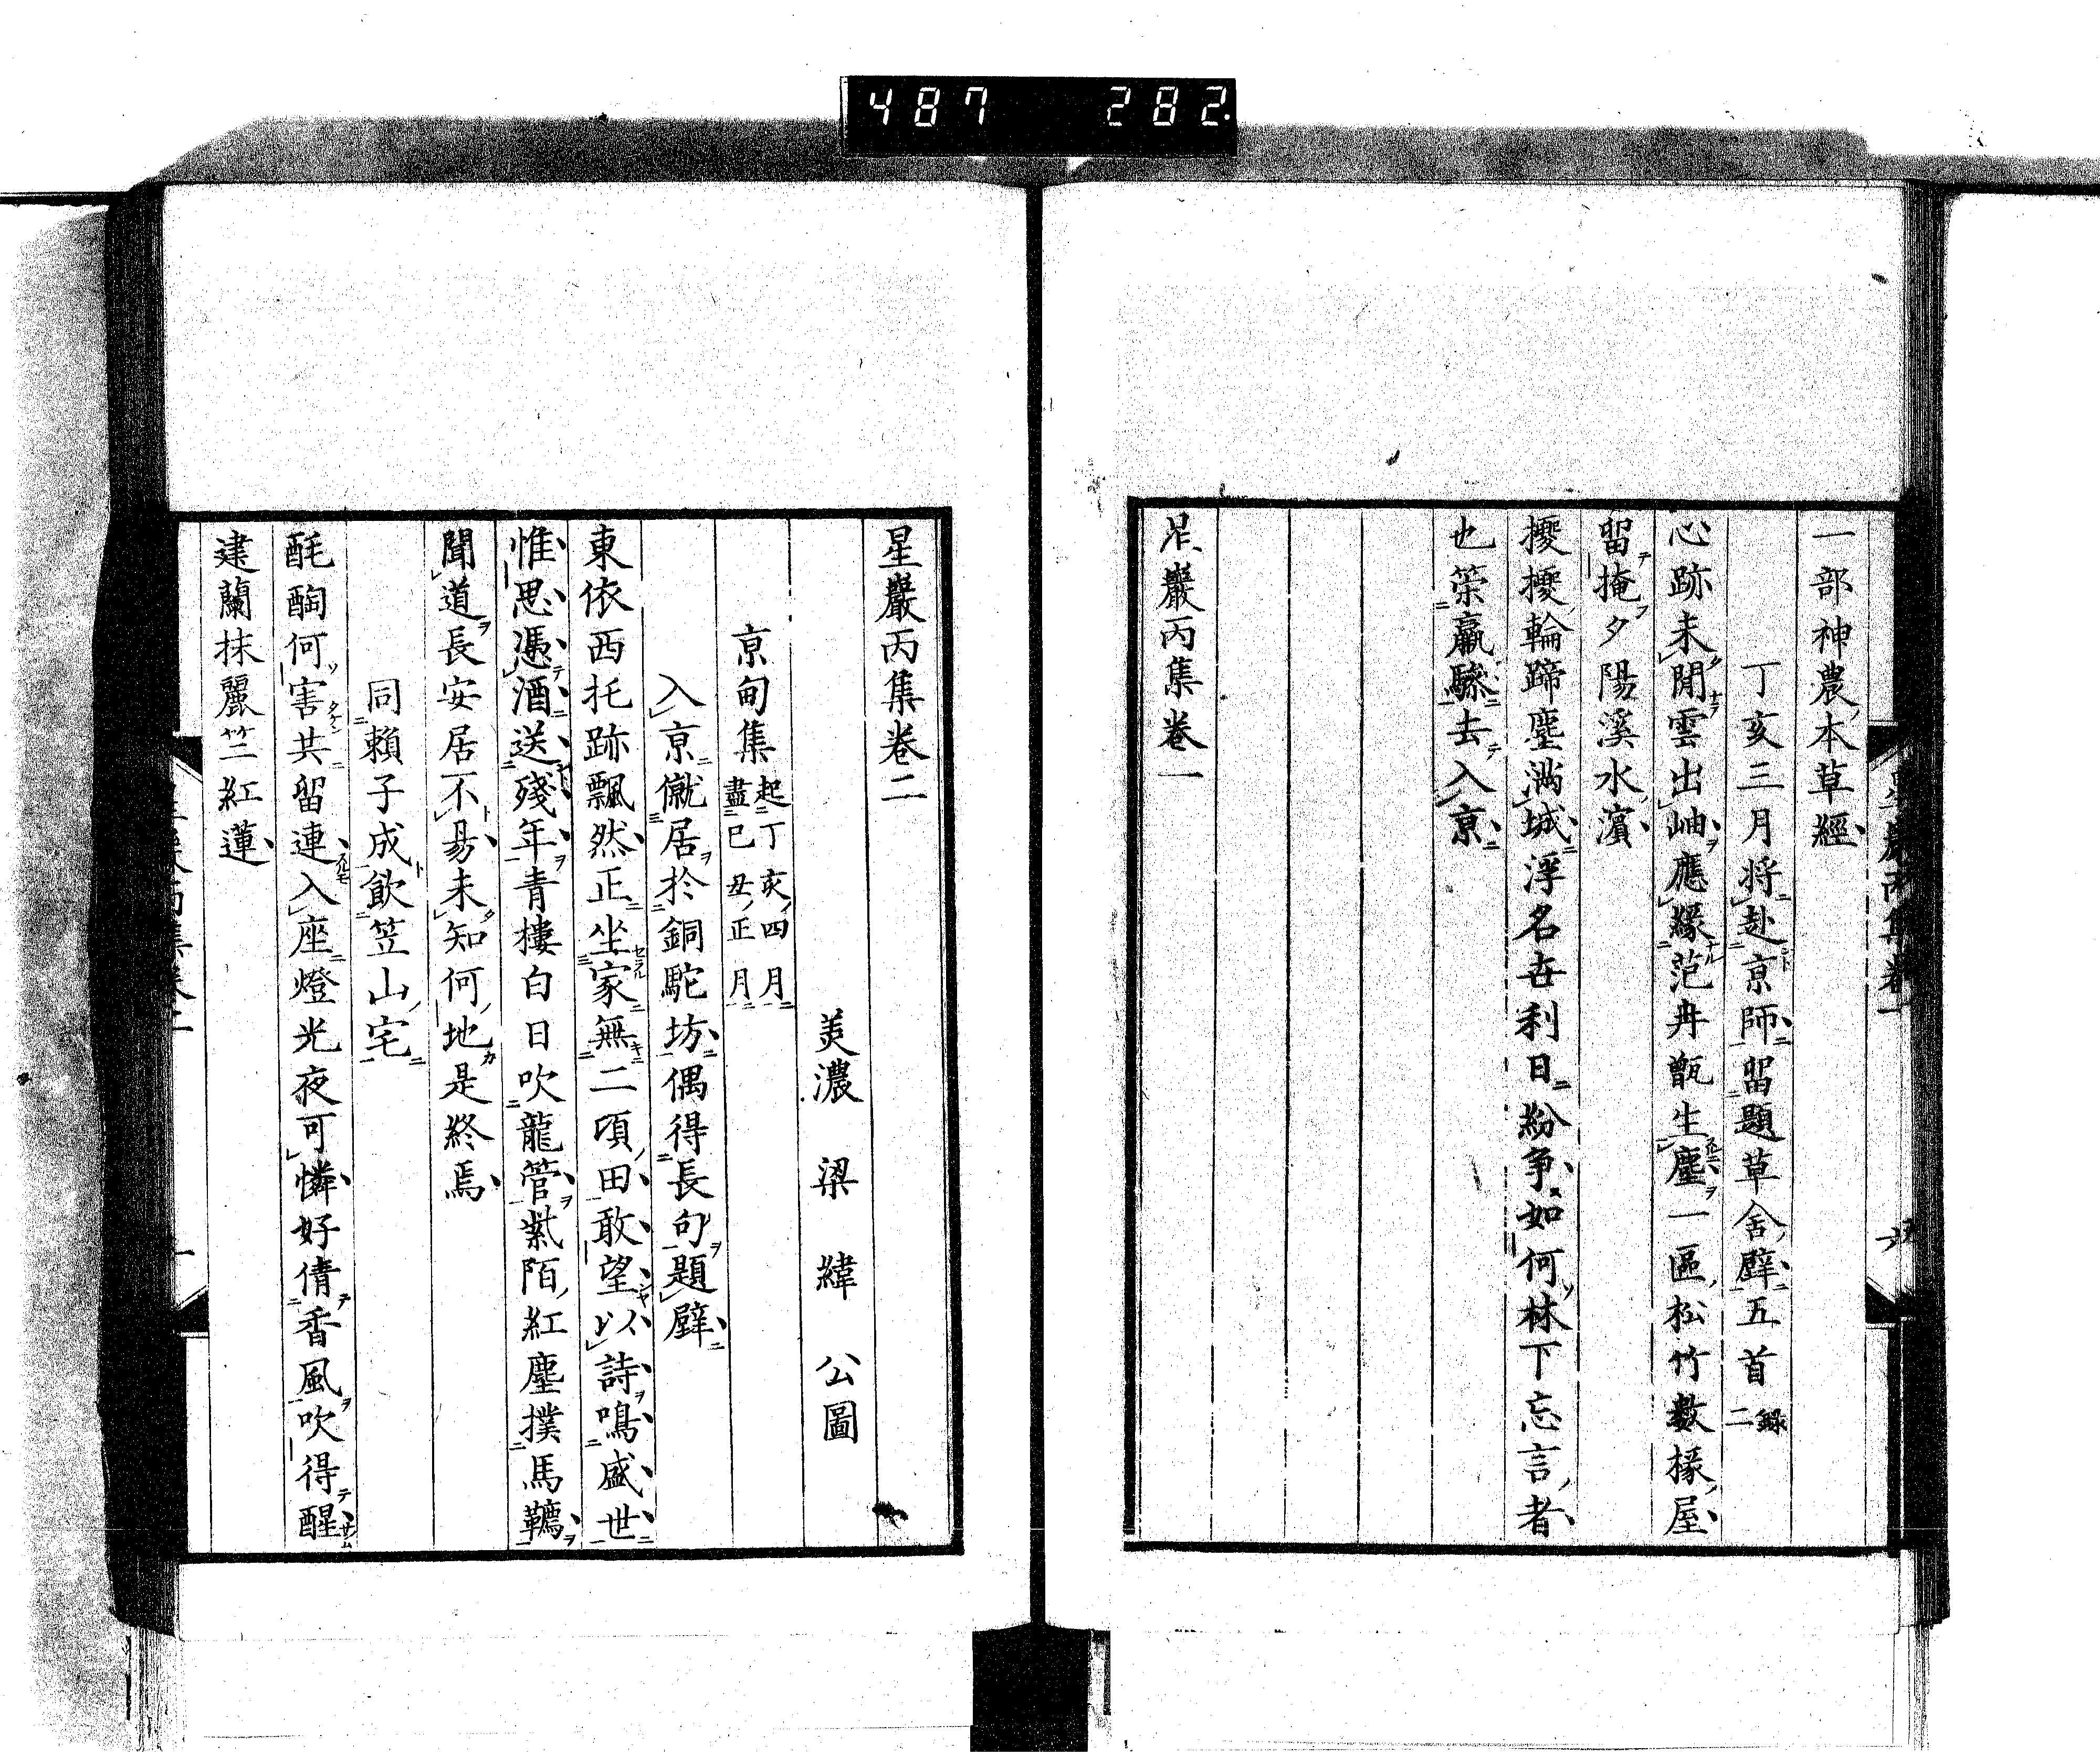 487 282
一部神農本草經
丁亥三月將赴京師留題草舍壁五首 錄二
心跡未閒雲出岫應緣范冉甑生塵一區松竹數椽屋
留掩夕陽溪水濱
擾擾輪蹄塵滿城浮名世利日紛爭如何林下忘言者
也策羸驂去入京
星巖丙集卷一
星巖丙集卷二
美濃 梁 緯 公圖
京甸集 起丁亥四月盡巳丑正月
入京僦居於銅駝坊偶得長句題壁
東依西托跡飄然正坐家無二頃田敢望以詩鳴盛世
惟思憑酒送殘年青樓白日吹龍管紫陌紅塵撲馬韉
聞道長安居不易未知何地是終焉
同賴子成飲笠山宅
酕醄何害共留連入座燈光夜可憐好倩香風吹得醒
建蘭抹麗竺紅蓮